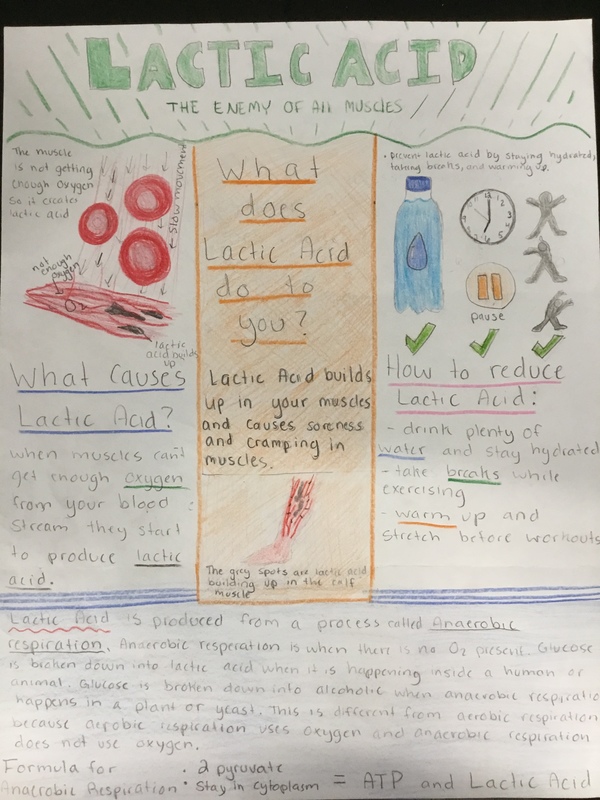 LACTIC ACID
THE ENEMY OF All MUSCLES
The muscle
is not getting
enough oxygen
so it creates
lactic acid
slow movement
not enough
oxygen
O2
lactic
acid builds
up
What causes
Lactic Acid?
when muscles can't
get enough oxygen
from your blood
stream they start
to produce lactic
acid.
What
does
Lactic Acid
do to
you?
Lactic Acid builds
up in your muscles
and causes soreness
and cramping in
muscles.
The grey spots are lactic acid
building up in the calf
muscle
• prevent lactic acid by staying hydrated,
taking breaks, and warming up.
12
3
6
9
pause
How to reduce
Lactic Acid:
- drink plenty of
water and stay hydrated
- take breaks while
exercising
- warm up and
stretch before workouts
Lactic Acid is produced from a process called Anaerobic
respiration. Anaerobic resperation is when there is no O2 present. Glucose
is broken down into lactic acid when it is happening inside a human or
animal. Glucose is broken down into alcoholic when anaerobic respiratio
happens in a plant or yeast. This is different from aerobic respiration
because aerobic respiration uses oxygen and anaerobic respiration
does not use oxygen.
Formula for
Anaerobic Respiration:
• 2 pyruvate
• Stay in cytoplasm
= ATP and Lactic Acid